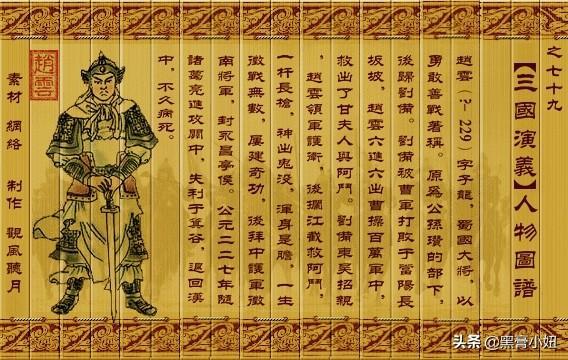 之七十九
【三國演義】人物圖譜
趙雲(?- 229)字子龍,蜀國大將,以
勇敢善戰著稱。原爲公孫瓚的部下,
後歸劉備。劉備被曹軍打敗于當陽長
坂坡,趙雲六進六出曹操百萬軍中,
救出了甘夫人與阿鬥。劉備東吴招親
,趙雲領軍護衛,後攔江截救阿鬥,
一杆長槍,神出鬼没,渾身是膽,一生
徵戰無數,屢建奇功,後拜中護軍徵
南將軍,封永昌亭侯。公元二二七年隨
諸葛亮進攻關中,失利于箕谷,退回漢
中,不久病死。
趙雲
素材 網絡 制作 觀風聽月
头条 @黑骨小妞